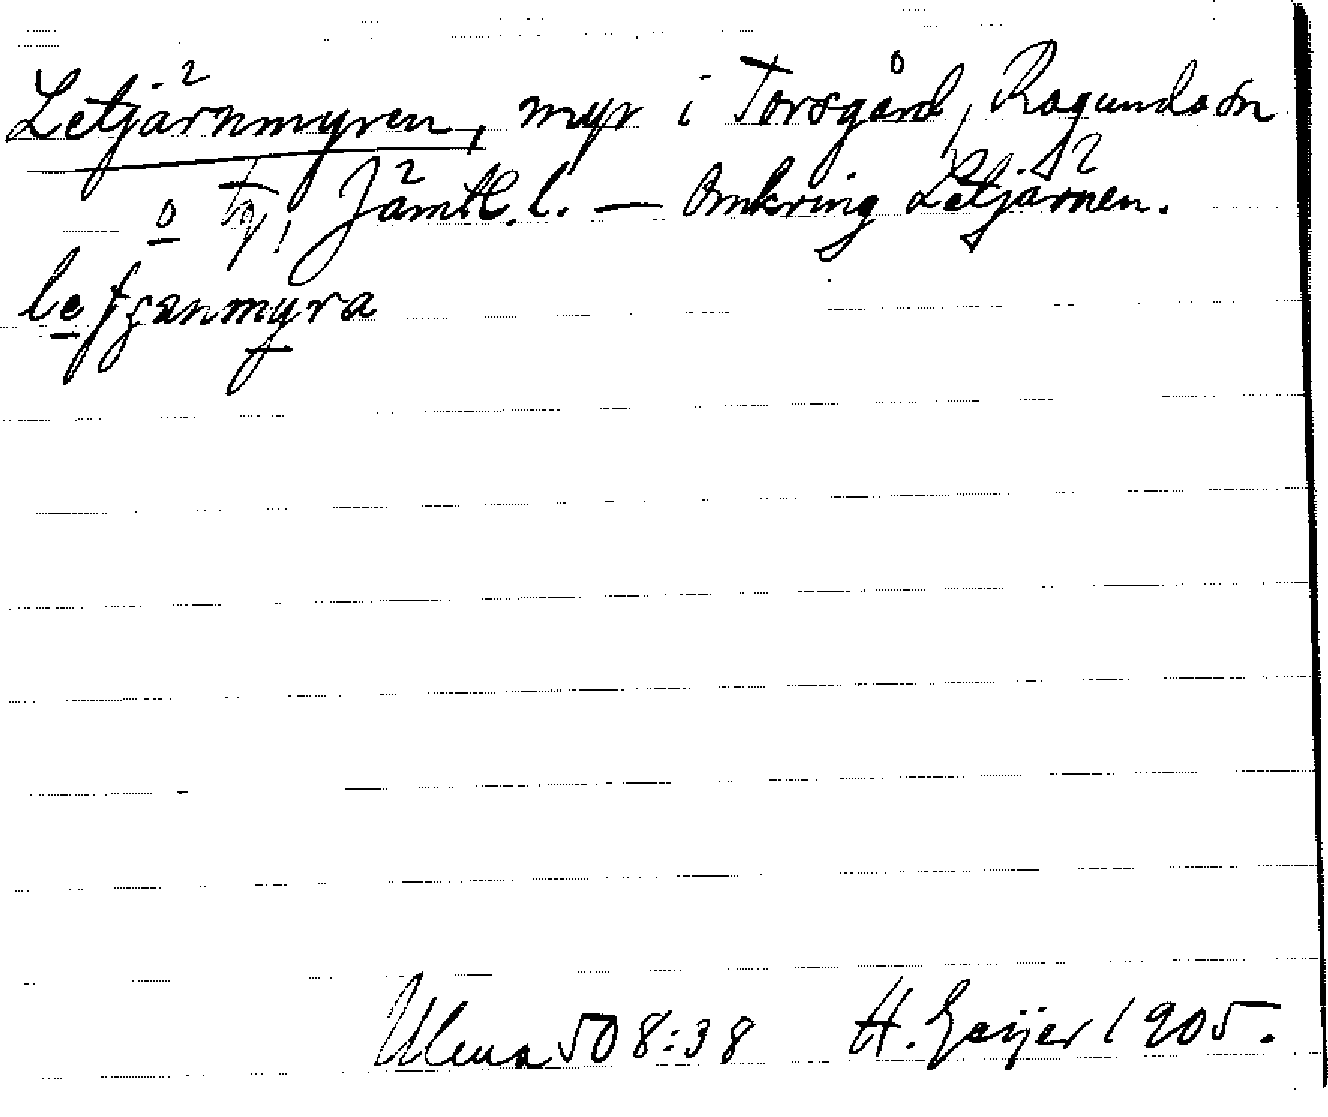 Letjärnmyren, myr i Torsgård, Ragunda sn
o tg, Jämtl. l. — Omkring Letjärnen.
Ulma 508:38 H. Geijer 1905.